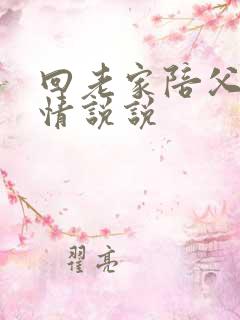 回老家陪父
情说说
翟亮